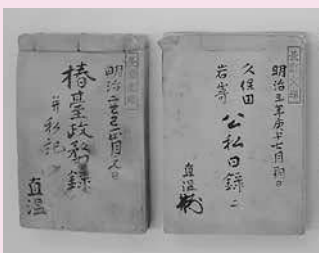 明治三年庚午七月朔日
久保田
岩崎
公私日録 二
直温
明治二
椿臺政務録
并私記
直温